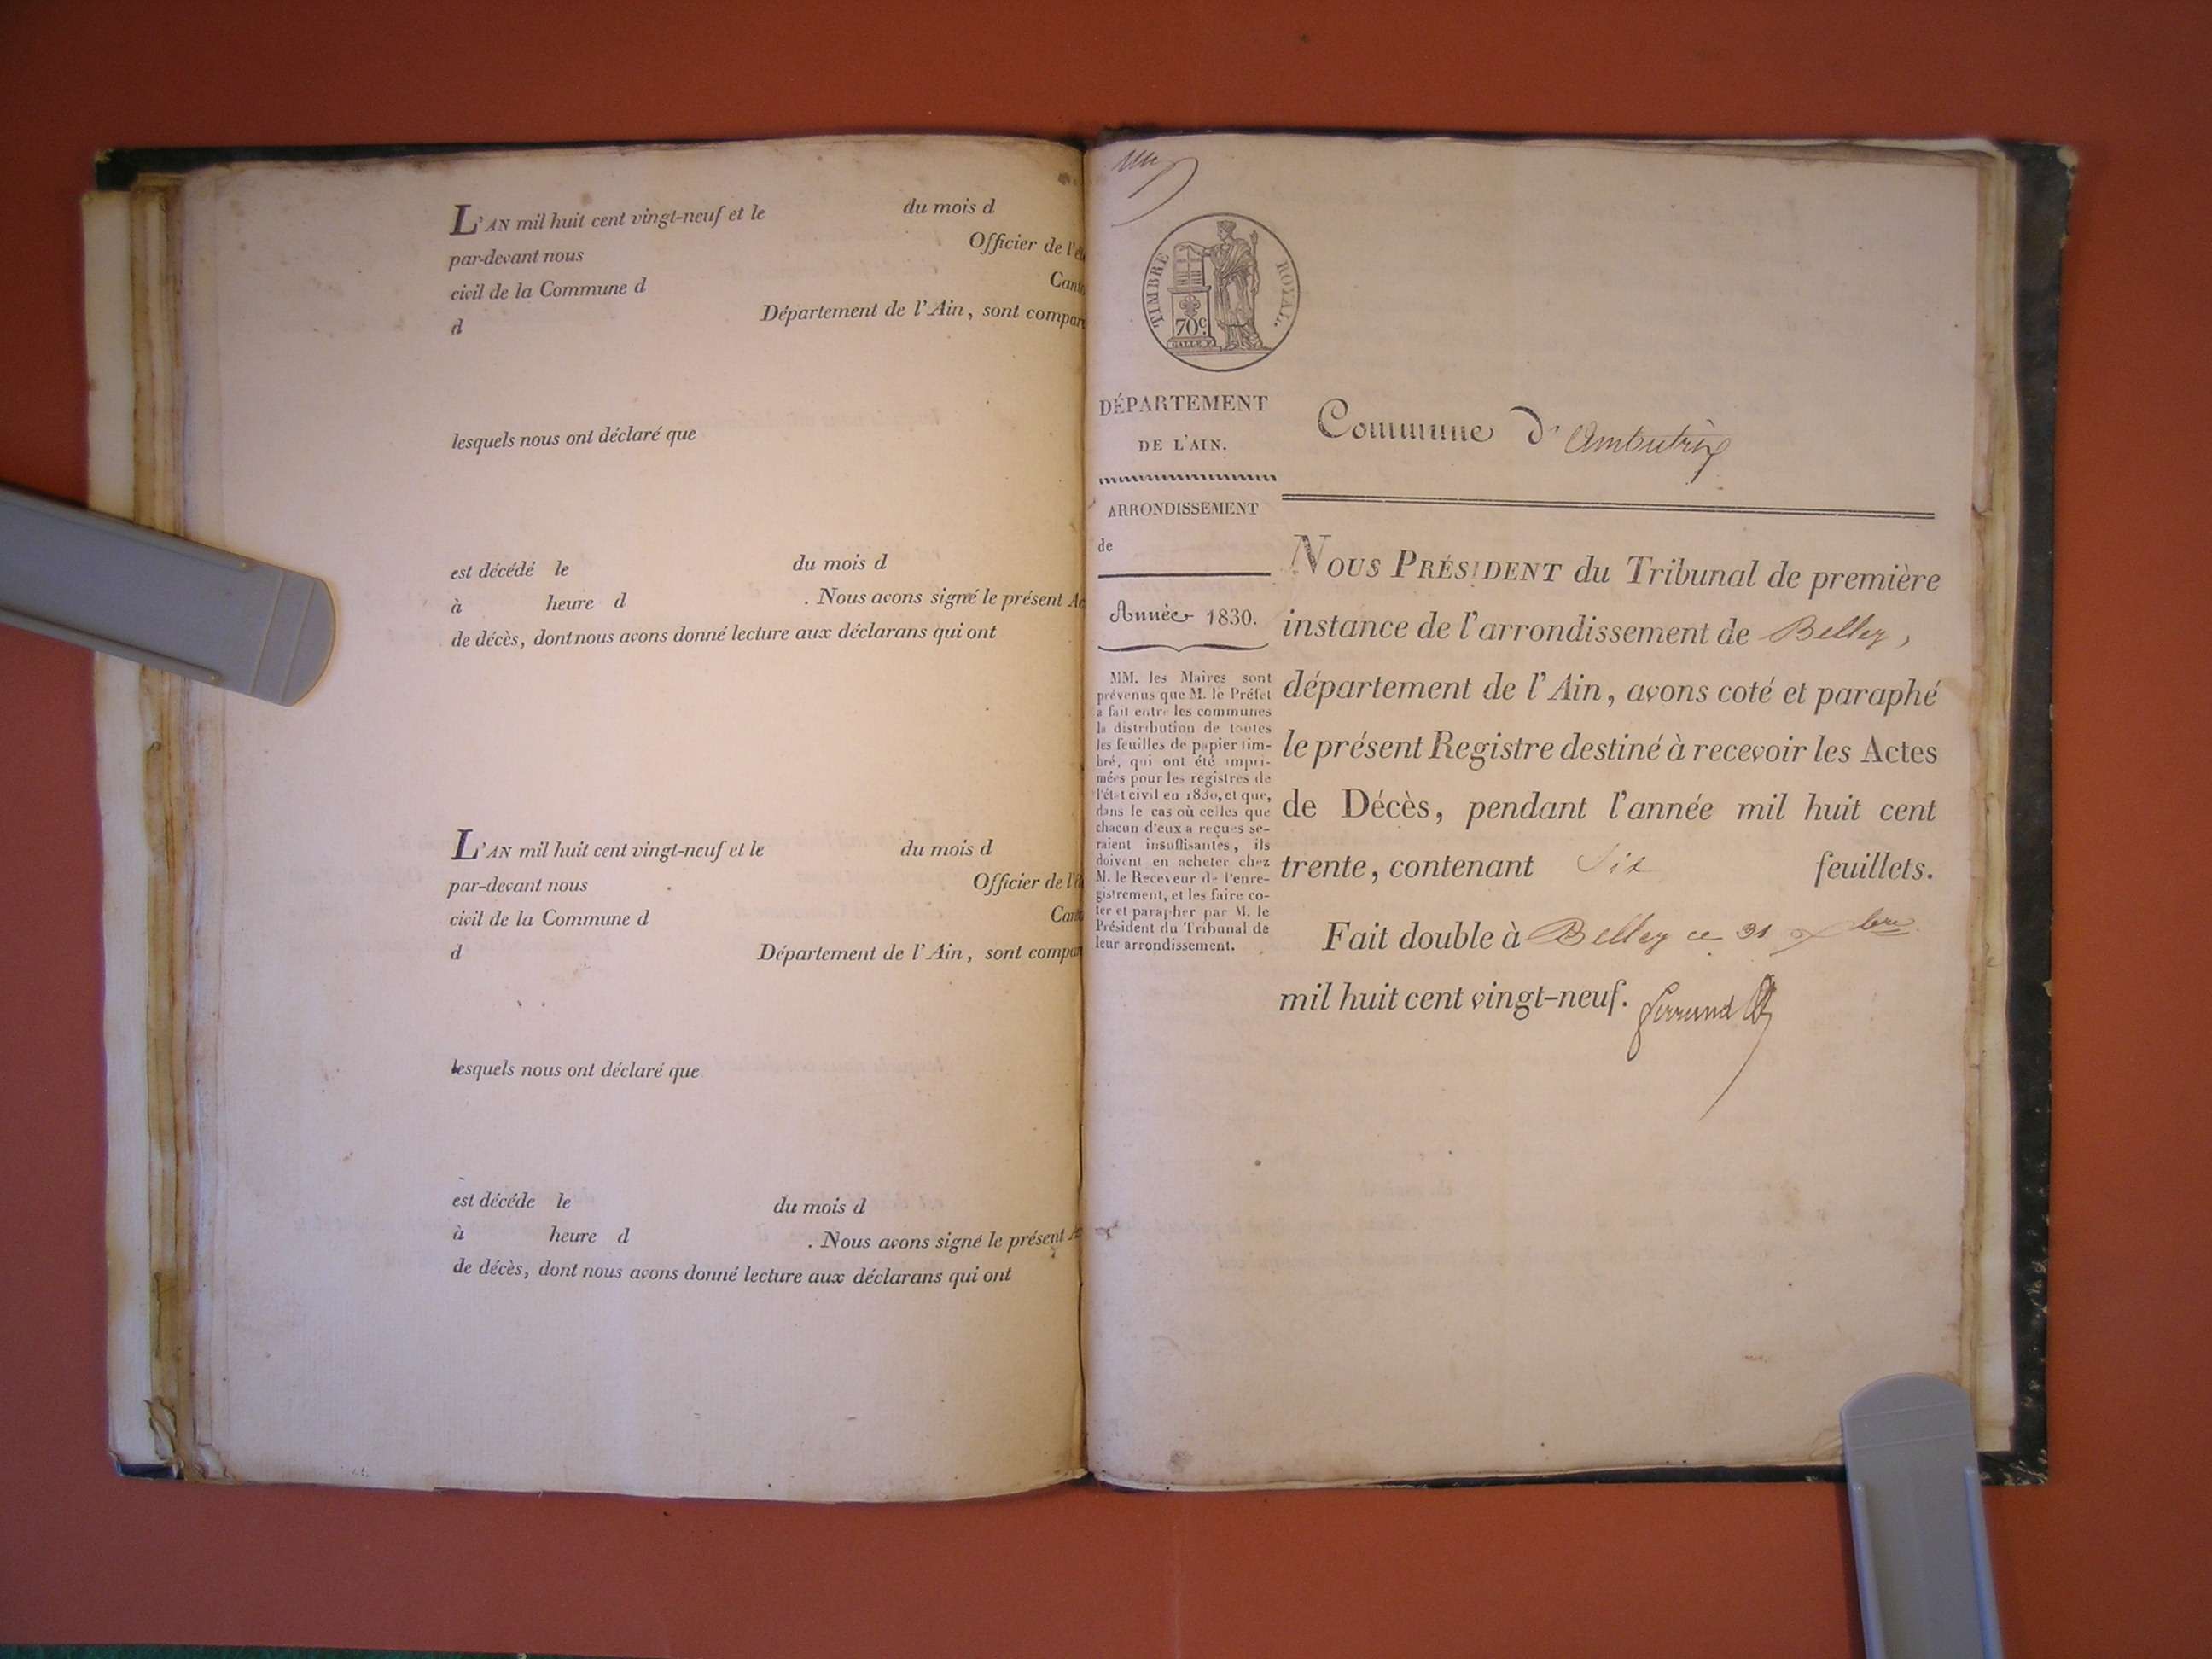 L'AN mil huit cent vingt-neuf et le du mois d
par-devant nous Officier de l'é
civil de la Commune d Cant
d Département de l'Ain, sont compar
lesquels nous ont déclaré que
est décédé le du mois d
à heure d . Nous avons signé le présent Ac
de décès, dont nous avons donné lecture aux déclarans qui ont
L'AN mil huit cent vingt-neuf et le du mois d
par-devant nous Officier de l'é
civil de la Commune d Cant
d Département de l'Ain, sont compar
lesquels nous ont déclaré que
est décéde le du mois d
à heure d . Nous avons signé le présent A
de décès, dont nous avons donné lecture aux déclarans qui ont
un
TIMBRE ROYAL.
70c.
DÉPARTEMENT
DE L'AIN.
ARRONDISSEMENT
de
Année 1830.
MM. les Maires sont
prévenus que M. le Préfet
a fait entre les communes
la distribution de toutes
les feuilles de papier tim-
bré, qui ont été impri-
mées pour les registres de
l'état civil en 1830, et que,
dans le cas où celles que
chacun d'eux a reçues se-
raient insuffisantes, ils
doivent en acheter chez
M. le Receveur de l'enre-
gistrement, et les faire co-
ter et parapher par M. le
Président du Tribunal de
leur arrondissement.
Commune d'Ambutrix
NOUS PRÉSIDENT du Tribunal de première
instance de l'arrondissement de Belley,
département de l'Ain, avons coté et paraphé
le présent Registre destiné à recevoir les Actes
de Décès, pendant l'année mil huit cent
trente, contenant Six feuillets.
Fait double à Belley ce 31 xbre
mil huit cent vingt-neuf.